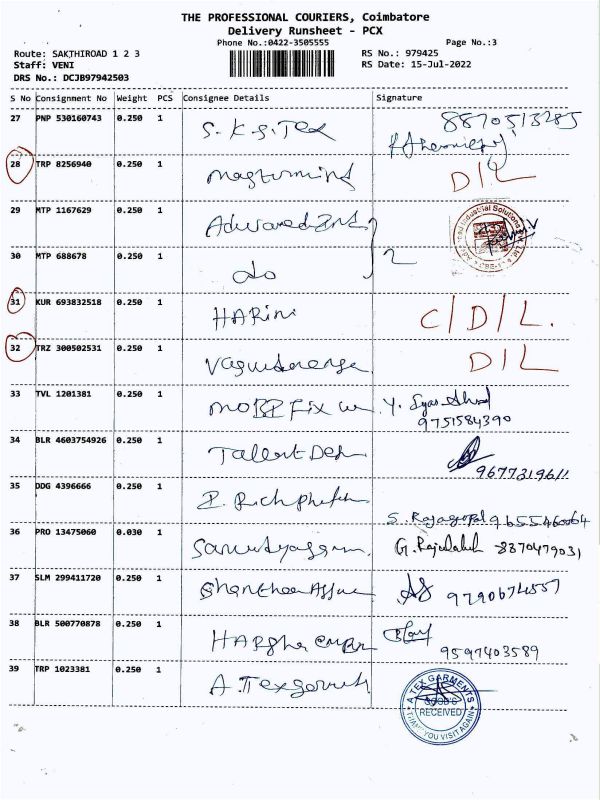 THE PROFESSIONAL COURIERS, Coimbatore
Delivery Runsheet - PCX
Phone No.:0422-3505555 Page No.:3
Route: SAKTHIROAD 1 2 3 RS No.: 979425
Staff: VENI RS Date: 15-Jul-2022
DRS No.: DCJB97942503
S No Consignment No Weight PCS Consignee Details Signature
27 PNP 530160743 0.250 1 S.K.S.Tex 8870513285
28 TRP 8256940 0.250 1 D/L
29 MTP 1167629 0.250 1
30 MTP 688678 0.250 1 do 2
31 KUR 693832518 0.250 1 HARini C/D/L.
32 TRZ 300502531 0.250 1 D/L
33 TVL 1201381 0.250 1 Fix
9751584390
34 BLR 4603754926 0.250 1 Talent
9677319611
35 DDG 4396666 0.250 1
S. Rajagopal 9655460064
36 PRO 13475060 0.030 1 8870479031
37 SLM 299411720 0.250 1 9790674557
38 BLR 500770878 0.250 1
9597403589
39 TRP 1023381 0.250 1 A.
A TEX GARMENTS
GOOD'S
RECEIVED
THANK YOU VISIT AGAIN